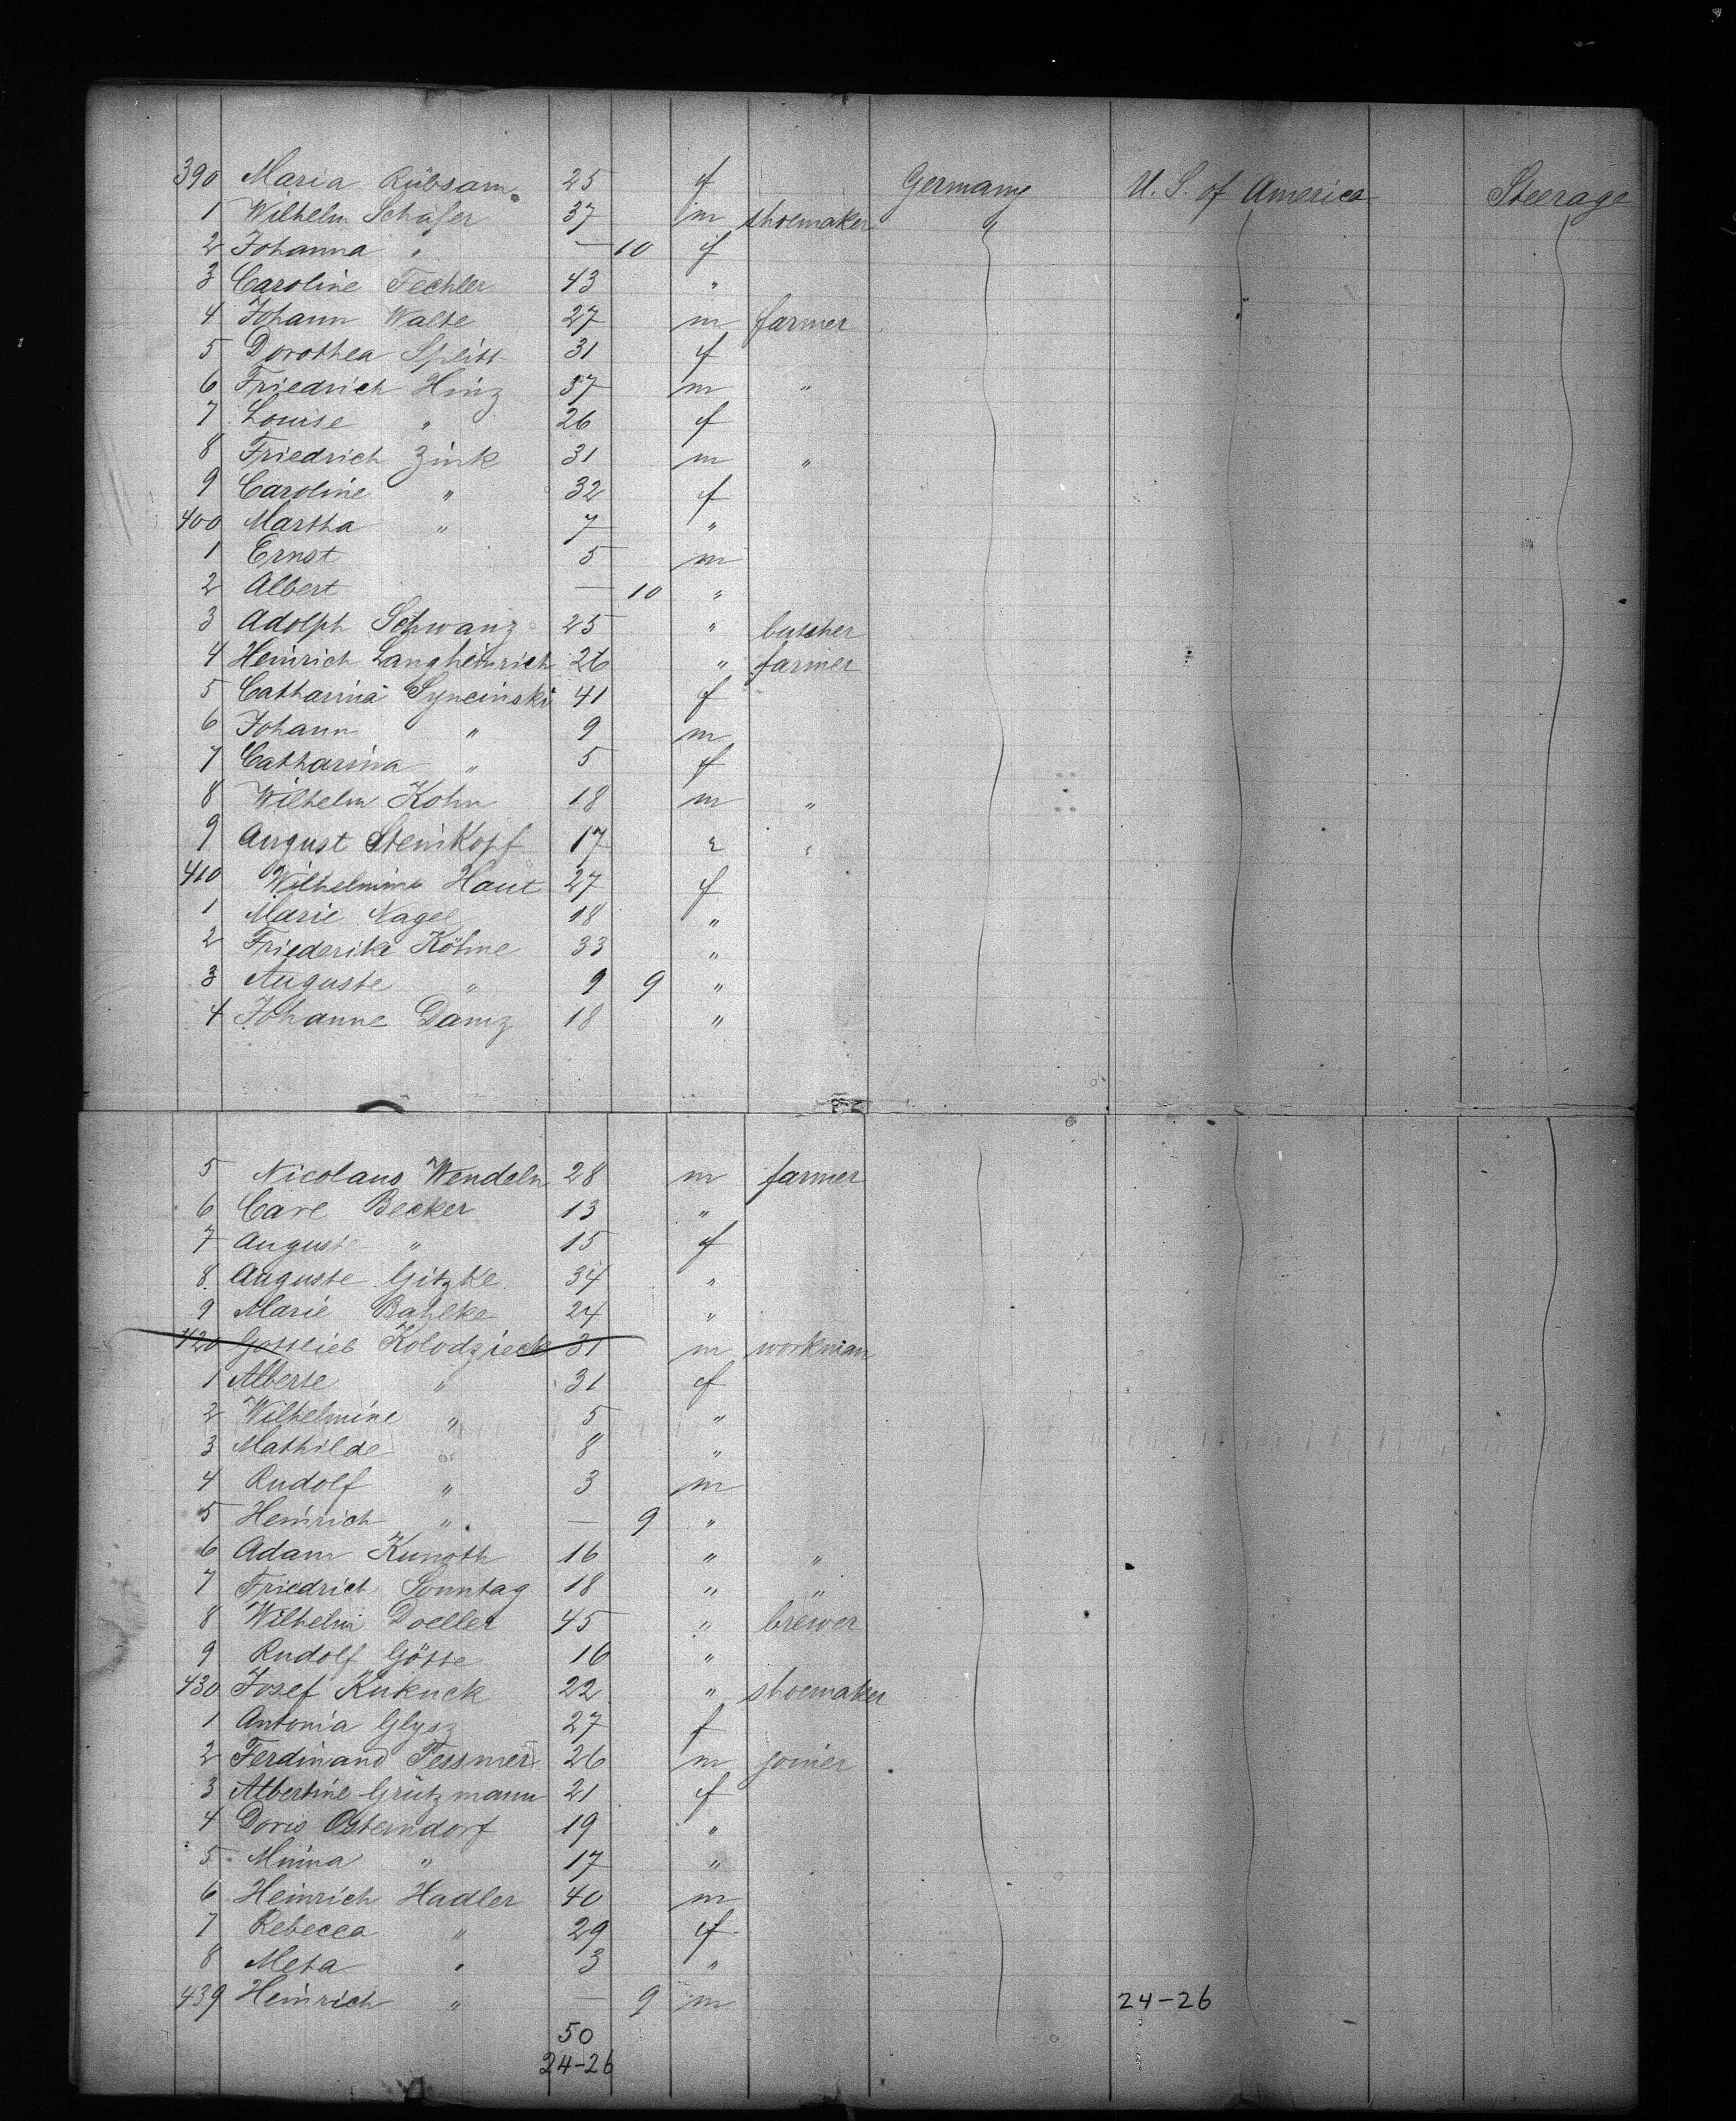 390 Maria Rübsam 25 f Germany U. S. of America Steerage
1 Wilhelm Schäfer 37 m shoemaker "
2 Johanna " — 10 f
3 Caroline Fechler 43 "
4 Johann Walte 27 m farmer
5 Dorothea Splitt 31 f
6 Friedrich Hinz 37 m "
7 Louise " 26 f
8 Friedrich Zink 31 m "
9 Caroline " 32 f
400 Martha " 7 "
1 Ernst 5 m
2 Albert — 10 "
3 Adolph Schwanz 25 " butcher
4 Heinrich Langheinrich 26 " farmer
5 Catharina Syncinski 41 f
6 Johann " 9 m
7 Catharina " 5 f
8 Wilhelm Kohn 18 m "
9 August Steinkopf 17 " "
410 Wilhelmine Haut 27 f
1 Marie Nagel 18 "
2 Friederike Köhne 33 "
3 Auguste " 9 9 "
4 Johanne Damz 18 "
5 Nicolaus Wendeln 28 m farmer
6 Carl Becker 13 "
7 Auguste " 15 f
8 Auguste Gitzke 34 "
9 Marie Bahlke 24 "
420 Gottlieb Kolodzieck 31 m workman
1 Alberte " 31 f
2 Wilhelmine " 5 "
3 Mathilde " 8 "
4 Rudolf " 3 m
5 Heinrich " — 9 "
6 Adam Kunoth 16 " "
7 Friedrich Sonntag 18 " "
8 Wilhelm Doeller 45 " brewer
9 Rudolf Götte 16 "
430 Josef Kukuck 22 " shoemaker
1 Antonia Glysz 27 f
2 Ferdinand Tessmer 26 m joiner
3 Albertine Grützmann 21 f
4 Doris Osterndorf 19 "
5 Minna " 17 "
6 Heinrich Hadler 40 m
7 Rebecca " 29 f
8 Meta " 3 "
439 Heinrich " — 9 m 24-26
50
24-26